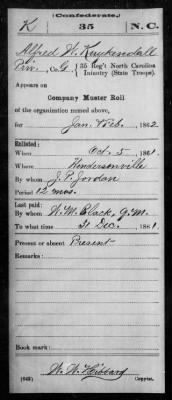 (Confederate.)
K 35 N.C.
Alfred W. Kuykendall
Priv., Co. G, 35 Reg't North Carolina
Infantry (State Troops).
Appears on
Company Muster Roll
of the organization named above,
for Jan. & Feb., 1862
Enlisted:
When Oct. 5, 1861.
Where Hendersonville
By whom J. P. Jordan
Period 12 mos.
Last paid:
By whom W. M. Black, Q.M.
To what time 31 Dec., 1861
Present or absent Present
Remarks:
Book mark:
W. W. Hibbard
(642) Copyist.